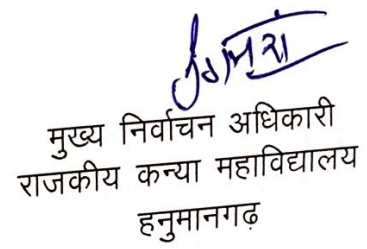 मुख्य निर्वाचन अधिकारी
राजकीय कन्या महाविद्यालय
हनुमानगढ़